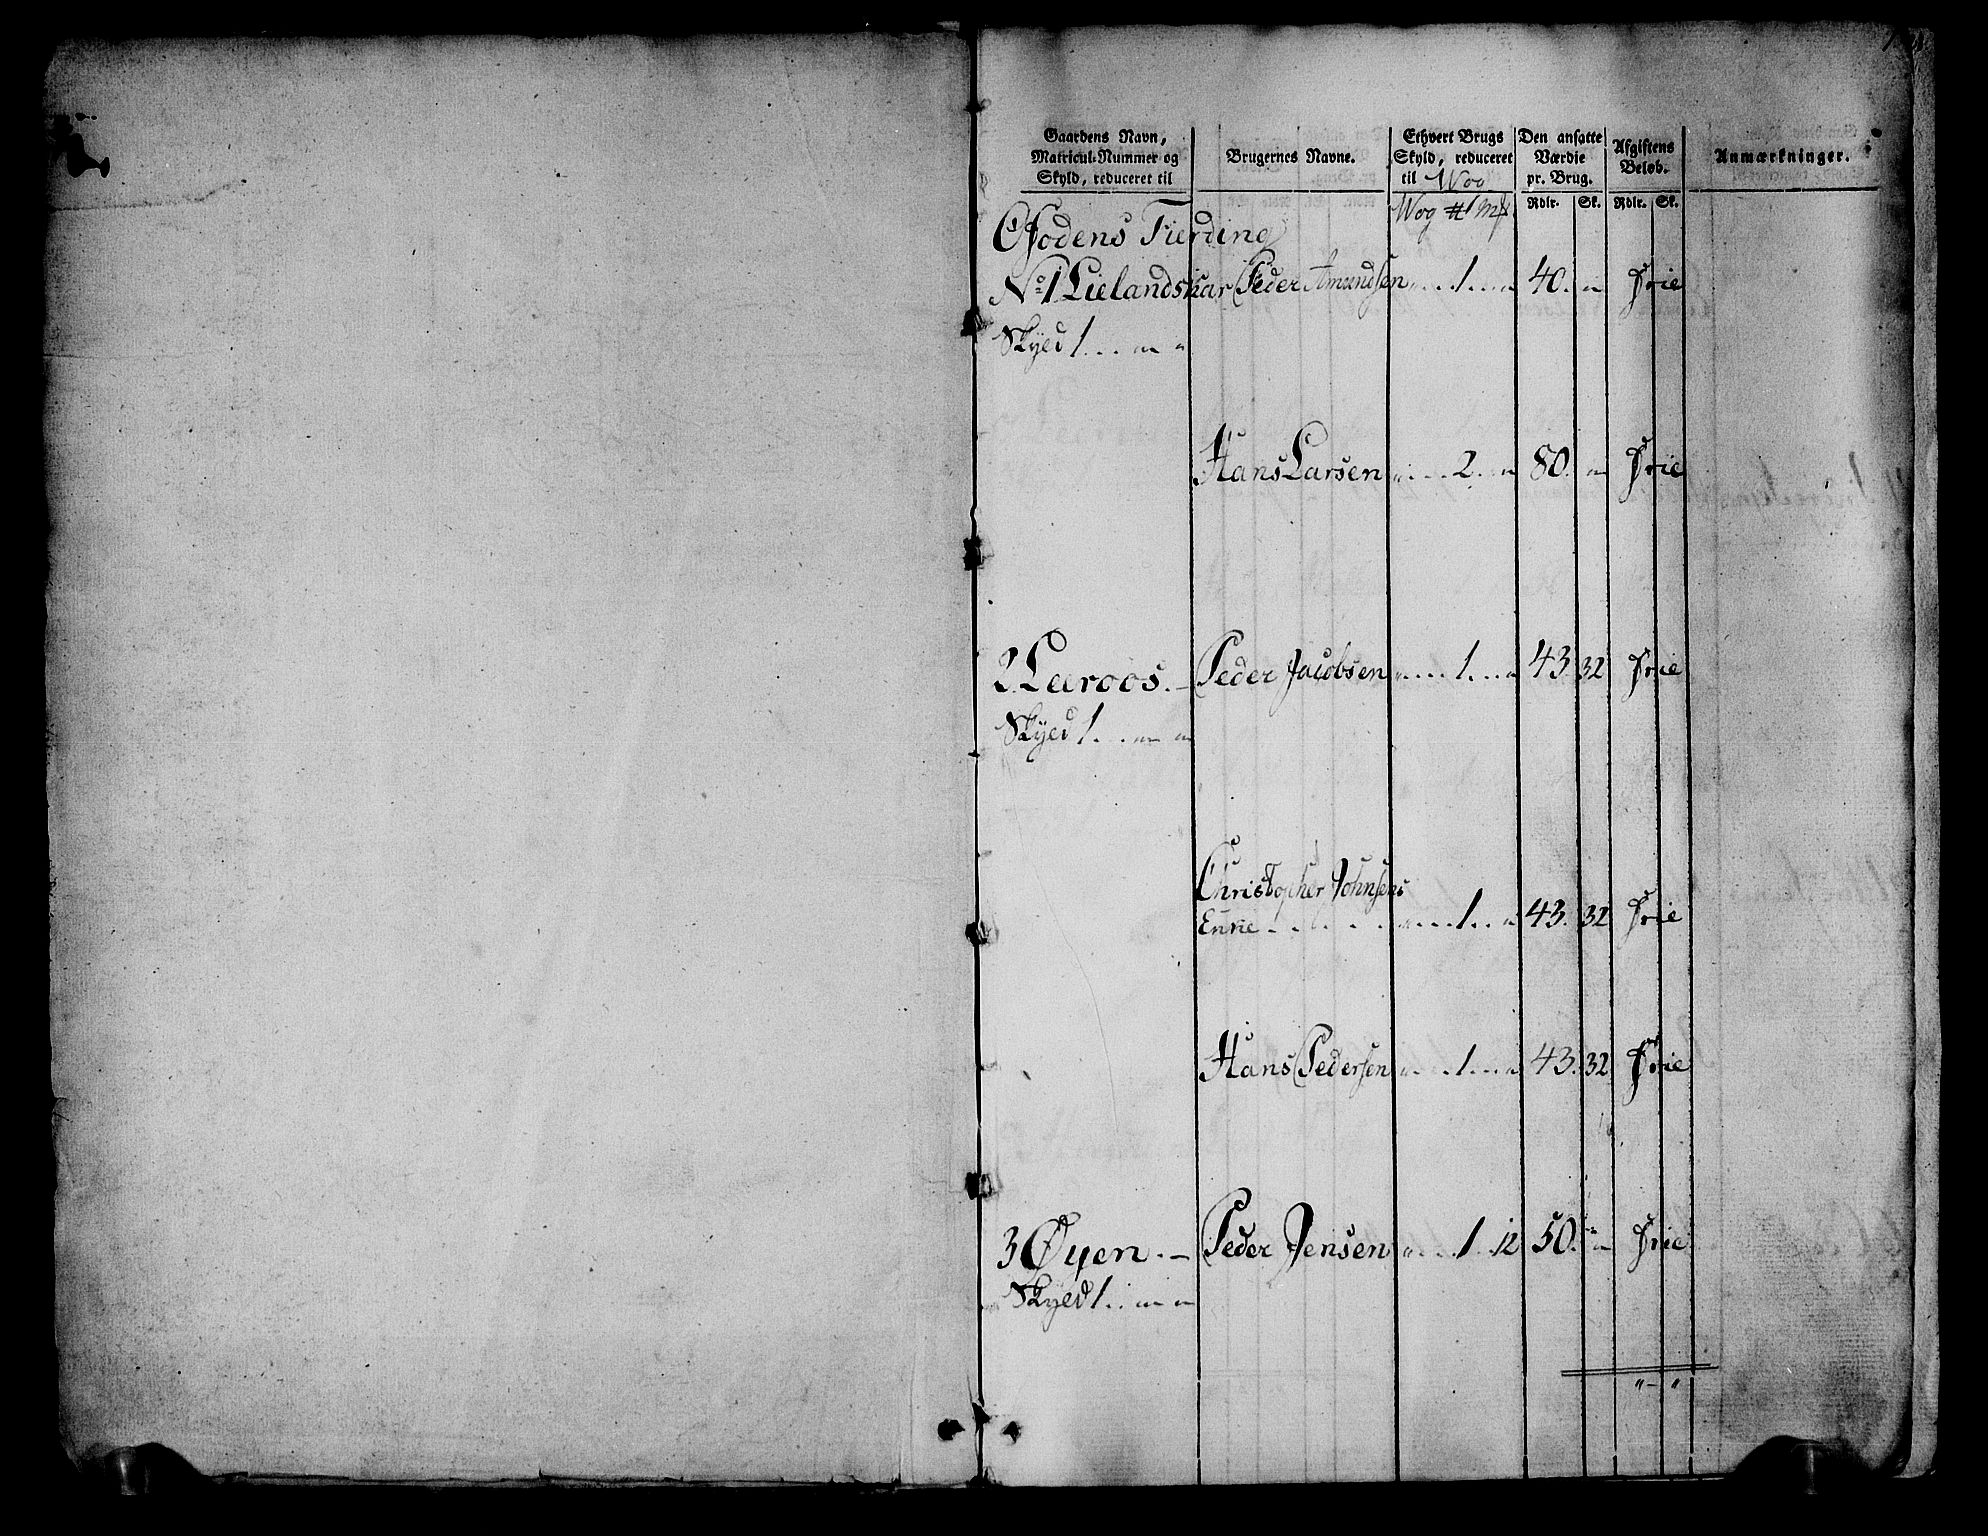 Gaardens Navn, Matricul-Nummer og Skyld, reduceret til
Brugernes Navne.
Ethvert Brugs Skyld, reduceret til Wog
Den ansatte Værdie pr. Brug.
Afgiftens Beløb.
Anmærkninger.
Wog # Mk
Rdlr. Sk. Rdlr. Sk.
Ofodens Fierding
No 1 Lielandskar Peder Amundsen " . . . 1 . . . " 40. " Frie
Skyld 1 . . . " "
Hans Larsen " . . . 2 . . " 80. " Frie
2 Læroos. – Peder Jacobsen " . . . . 1 . . . " 43. 32 Frie
Skyld 1 . . . " "
Christopher Johnsens
Enke . . . . . . " . . . 1 . . " 43. 32 Frie
Hans Pedersen " . . . 1 . . . " 43. 32 Frie
3 Øyen. – Peder Jensen " . . . 1 . . 12 50. " Frie
Skyld 1 . . . " "
" – "